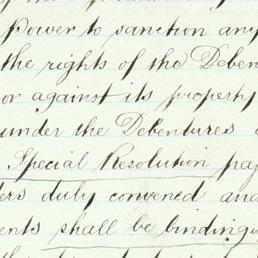 Power to sanction any
the rights of the Deben
or against its property
under the Debentures
Special Resolution pa
ers duly convened and
ents shall be binding